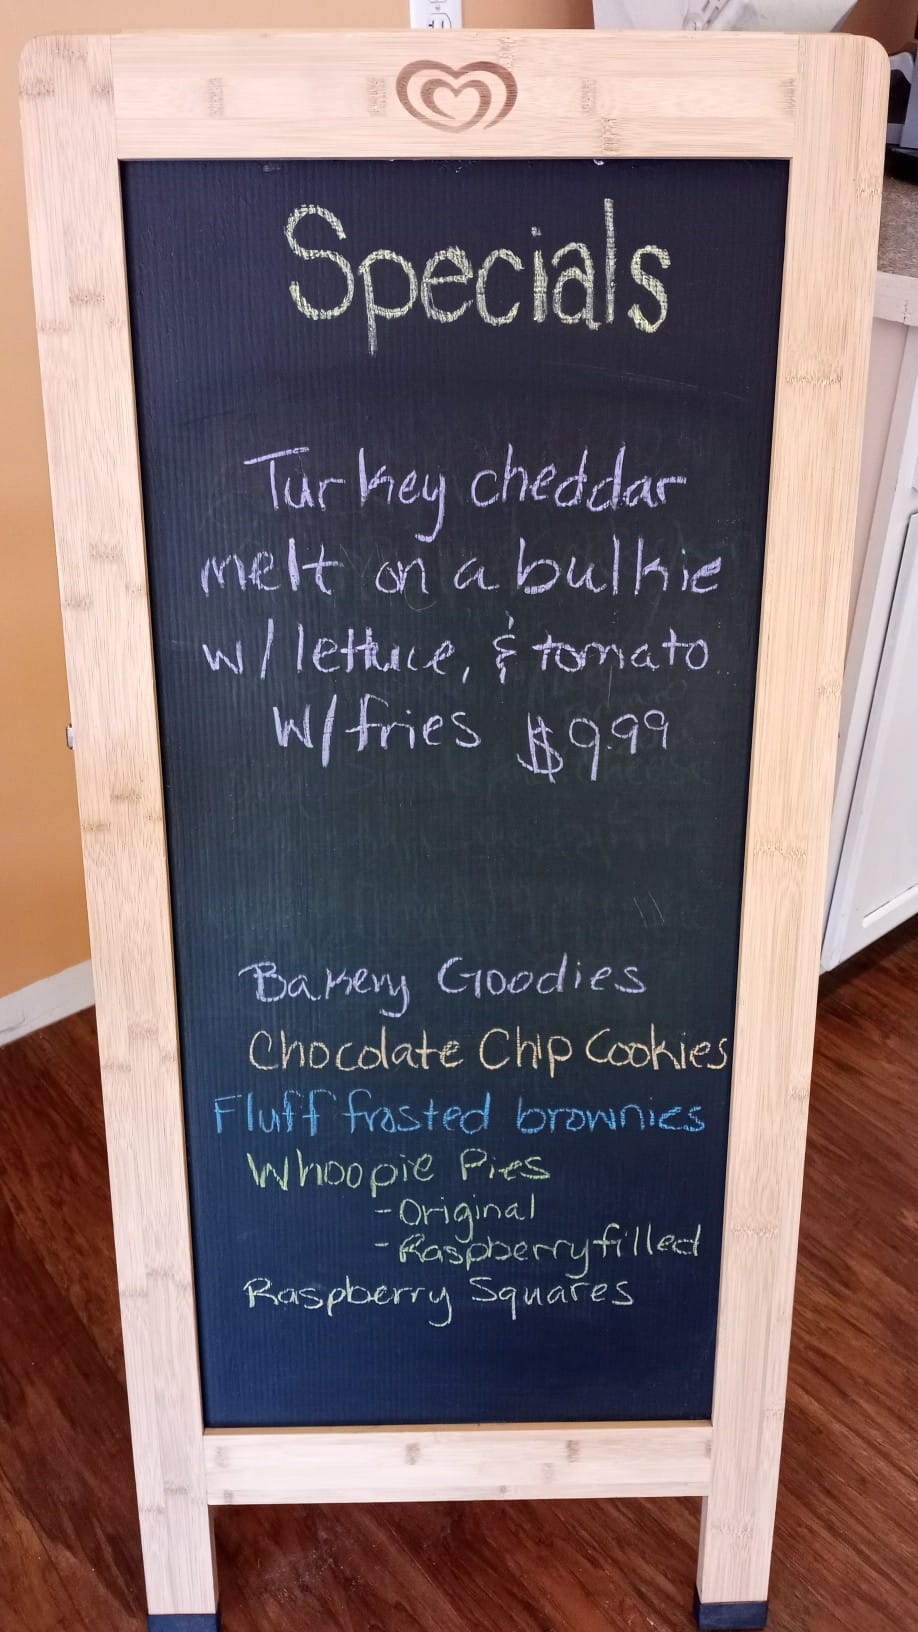 Specials
Turkey cheddar
melt on a bulkie
w/lettuce, & tomato
w/fries $9.99
Bakery Goodies
Chocolate Chip Cookies
Fluff frosted brownies
Whoopie Pies
-Original
-Raspberry filled
Raspberry Squares